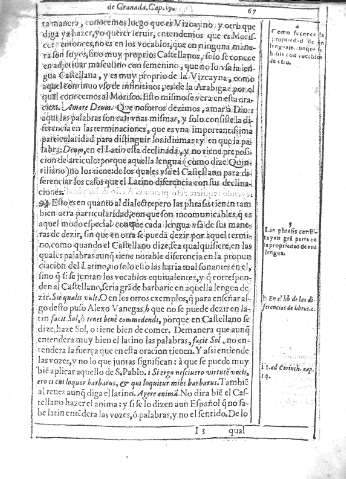 de Granada, Cap. 19. 67
ta manera, conocemos luego que es Vizcayno, y otro que
diga ya hazer, yo querer reruir, entendemos que es Moris-
co: entonces, no es en los vocablos, que en ninguna mane-
ra son suyos, sino muy propios Castellanos, solo se conoce
en adjetiuar masculino con femenino, que no lo vsa la len
gua Castellana, y es muy proprio de la Vizcayna, como
aquel continuo vso de infinitiuos, es de la Arabiga, por el
qual conocemos al Morisco. Esto mismo se vera en esta ora
cion. Amare Deum. Que nosotros dezimos, amar a Dios:
aqui las palabras son casi vnas mismas, y solo consiste la di-
ferencia en las terminaciones, que es vna importantissima
particularidad para distinguir los idiomas: y en que la pa
labra: Deum, en el Latin esta declinada, y no tiene preposi-
cion de articulo: porque aquella lengua (como dize Quin-
tiliano) no los tiene de los quales vsa el Castellano para di-
ferenciar los casos que el Latino diferencia con sus declina
ciones.
Esto es en quanto al dialecto: pero las phrases tienen tam
bien otra particularidad, con que son incomunicables, q̃ es
aquel modo especial con que cada lengua vsa de sus mane
ras de dezir, sin que en otra se pueda dezir por igual termi-
no, como quando el Castellano dize, sea qual quisiere, en las
quales palabras aunq̃ tiene notable diferencia en la pronun
ciacion del Latino, no solo esto las haria mal sonantes en el,
sino q̃ si se juntan los vocablos equiualentes, y q̃ correspon-
den al Castellano, seria grã de barbarie en aquella lengua de
zir. Sis qualis vult. O en los otros exemplos, q̃ para enseñar al-
go desto puso Alexo Vanegas, b que no se puede dezir en la-
tin facit Sol, ò tenes bene comedendo, porque en Castellano se
dize, haze Sol, o tiene bien de comer. De manera que aunq̃
entendera muy bien el latino las palabras, facit Sol, no en-
tendera la fuerça que en esta oracion tienen. Y assi entiende
las vozes, y no lo que juntas significan: à que se puede muy
biẽ aplicar aquello de S. Pablo. 1 Si ergo nesciero virtutẽ vocis,
ero ei cui loquor barbarus, & qui loquitur mihi barbarus. Tambiẽ
al reues aunq̃ diga el latino. Agere animã. No dira biẽ el Cas-
tellano hazer el anima: y si se lo dizen aun Español q̃ no sa-
be latin entẽdera las vozes, ò palabras, y no el sentido. De lo
I 3 qual
4
Como se cono ce la
propriedad de vn
lenguage, aunque
los vocablos
de otro.
5
Las phrases consti-
tuyen grã parte en
la propriedad de vna
lengua.
b En el lib. de las di-
ferencias de libros, c.
1 1. ad Corinth. cap.
14.